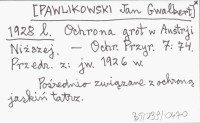 [PAWLIKOWSKI Jan Gwalbert]
1928 l. Ochrona grót w Austrji
Niższej. — Ochr. Przyr. 7: 74.
Przedr. z: jw. 1926 w.
Pośrednio związane z ochroną
jaskiń tatrz.